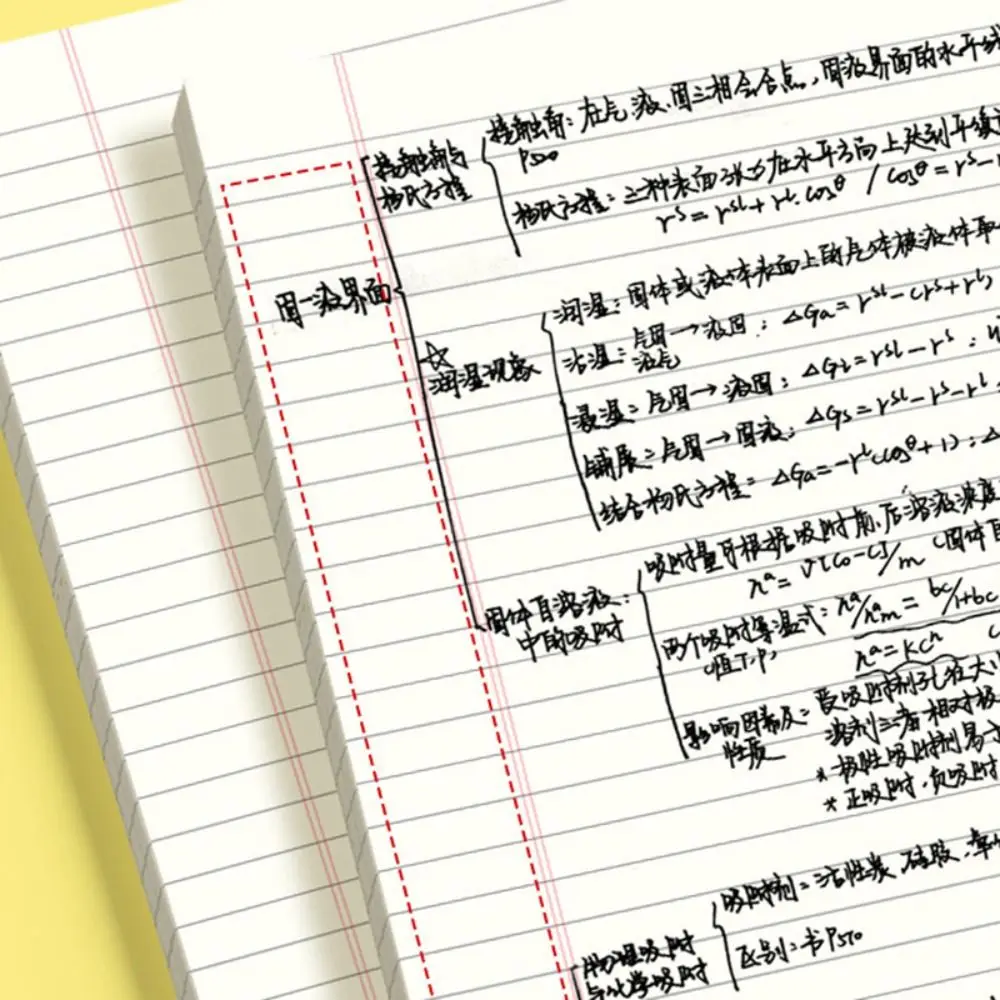 接触角与
杨氏方程
接触角: 在气、液、固三相会合点,固液界面的水平线
P510
杨氏方程: 三种表面张力在水平方向上达到平缓
rˢ = rˢᴸ + rᴸ·cosθ / cosθ = rˢ-r
固-液界面
☆
润湿现象
润湿: 固体或液体表面上的气体被液体取
沾湿: 气固→液固: △Ga = rˢᴸ - (rˢ + rᴸ)
液气
浸湿: 气固→液固: △Gi = rˢᴸ - rˢ:
铺展: 气固→固液: △Gs = rˢᴸ - rˢ - rᴸ
结合杨氏方程: △Ga = -rᴸ(cosθ+1): △
固体自溶液
中的吸附
吸附量可根据吸附前、后溶液浓度
nᵃ = V(C₀-C)/m (固体自
两个吸附等温式: nᵃ/nᵃm = bc/1+bc
(恒T、P)
nᵃ = kCⁿ
影响因素及
性质
: 受吸附剂孔径大小
溶剂三者相对极
* 极性吸附剂易
* 正吸附、负吸附
物理吸附
与化学吸附
吸附剂: 活性炭、硅胶、
区别: 书P510